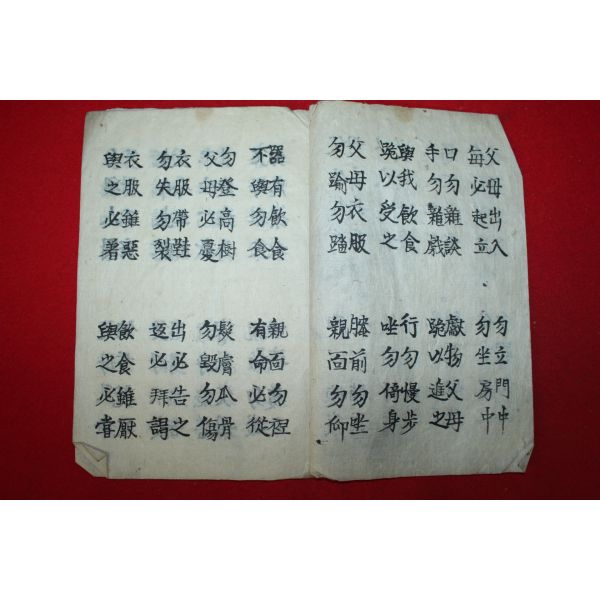 父母出入
每必起立
勿立門中
勿坐房中
口勿雜談
手勿雜戱
獻物父母
跪以進之
與我飲食
跪以受之
行勿慢步
坐勿倚身
父母衣服
勿踰勿踏
膝前勿坐
親面勿仰
器有飲食
不與勿食
親面勿
有命必從
勿登高樹
父母必憂
髮膚爪骨
勿毀勿傷
衣服帶鞋
勿失勿裂
出必告之
返必拜謁
衣服雖惡
與之必著
飲食雖厭
與之必嘗